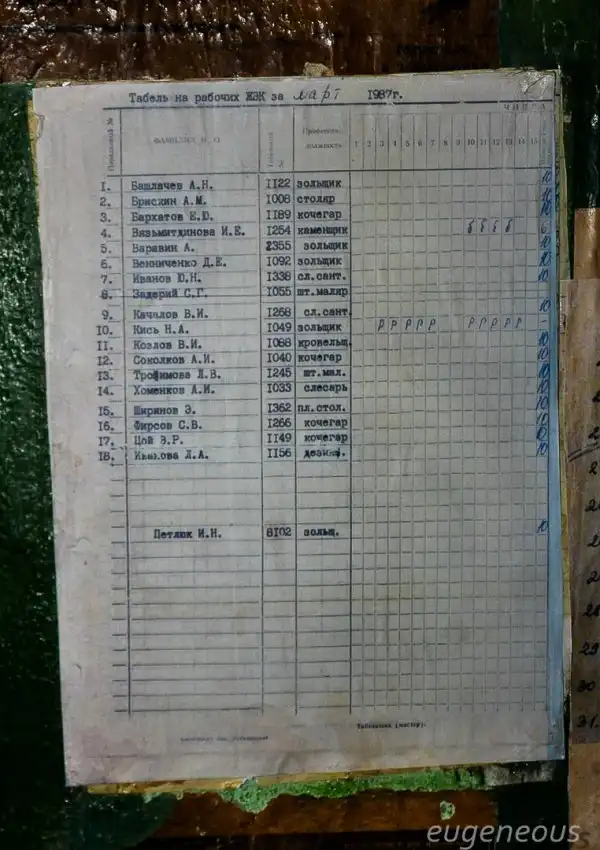 Табель на рабочих ЖЭК за март 1987г.
ЧИСЛА
ФАМИЛИЯ И. О.
должность
1 2 3 4 5 6 7 8 9 10 11 12 13 14 15
1. Башлачев А.Н. 1122 зольщик 10
2. Брискин А.М. 1008 столяр 10
3. Бархатов Е.Ю. 1189 кочегар 10
4. Вязьмитдинова И.Е. 1254 каменщик б б б б 6
5. Варавин А. 2355 зольщик 10
6. Венниченко Д.Е. 1092 зольщик 10
7. Иванов Ю.Н. 1338 сл.сант. 10
8. Задерий С.Г. 1055 шт.маляр
9. Качалов В.И. 1268 сл.сант. 10
10. Кись Н.А. 1049 зольщик р р р р р р р р р р -
11. Козлов В.И. 1088 кровельщ. 10
12. Соколков А.И. 1040 кочегар 10
13. Трофимова Л.В. 1245 шт.мал. 10
14. Хоменков А.И. 1033 слесарь 10
15. Ширинов Э. 1362 пл.стол. 10
16. Фирсов С.В. 1266 кочегар 10
17. Цой В.Р. 1149 кочегар 10
18. Л.А. 1156 10
Петлюк И.Н. 8102 зольщ. 10
Табельщик (мастер).
29
30
31.
eugeneous